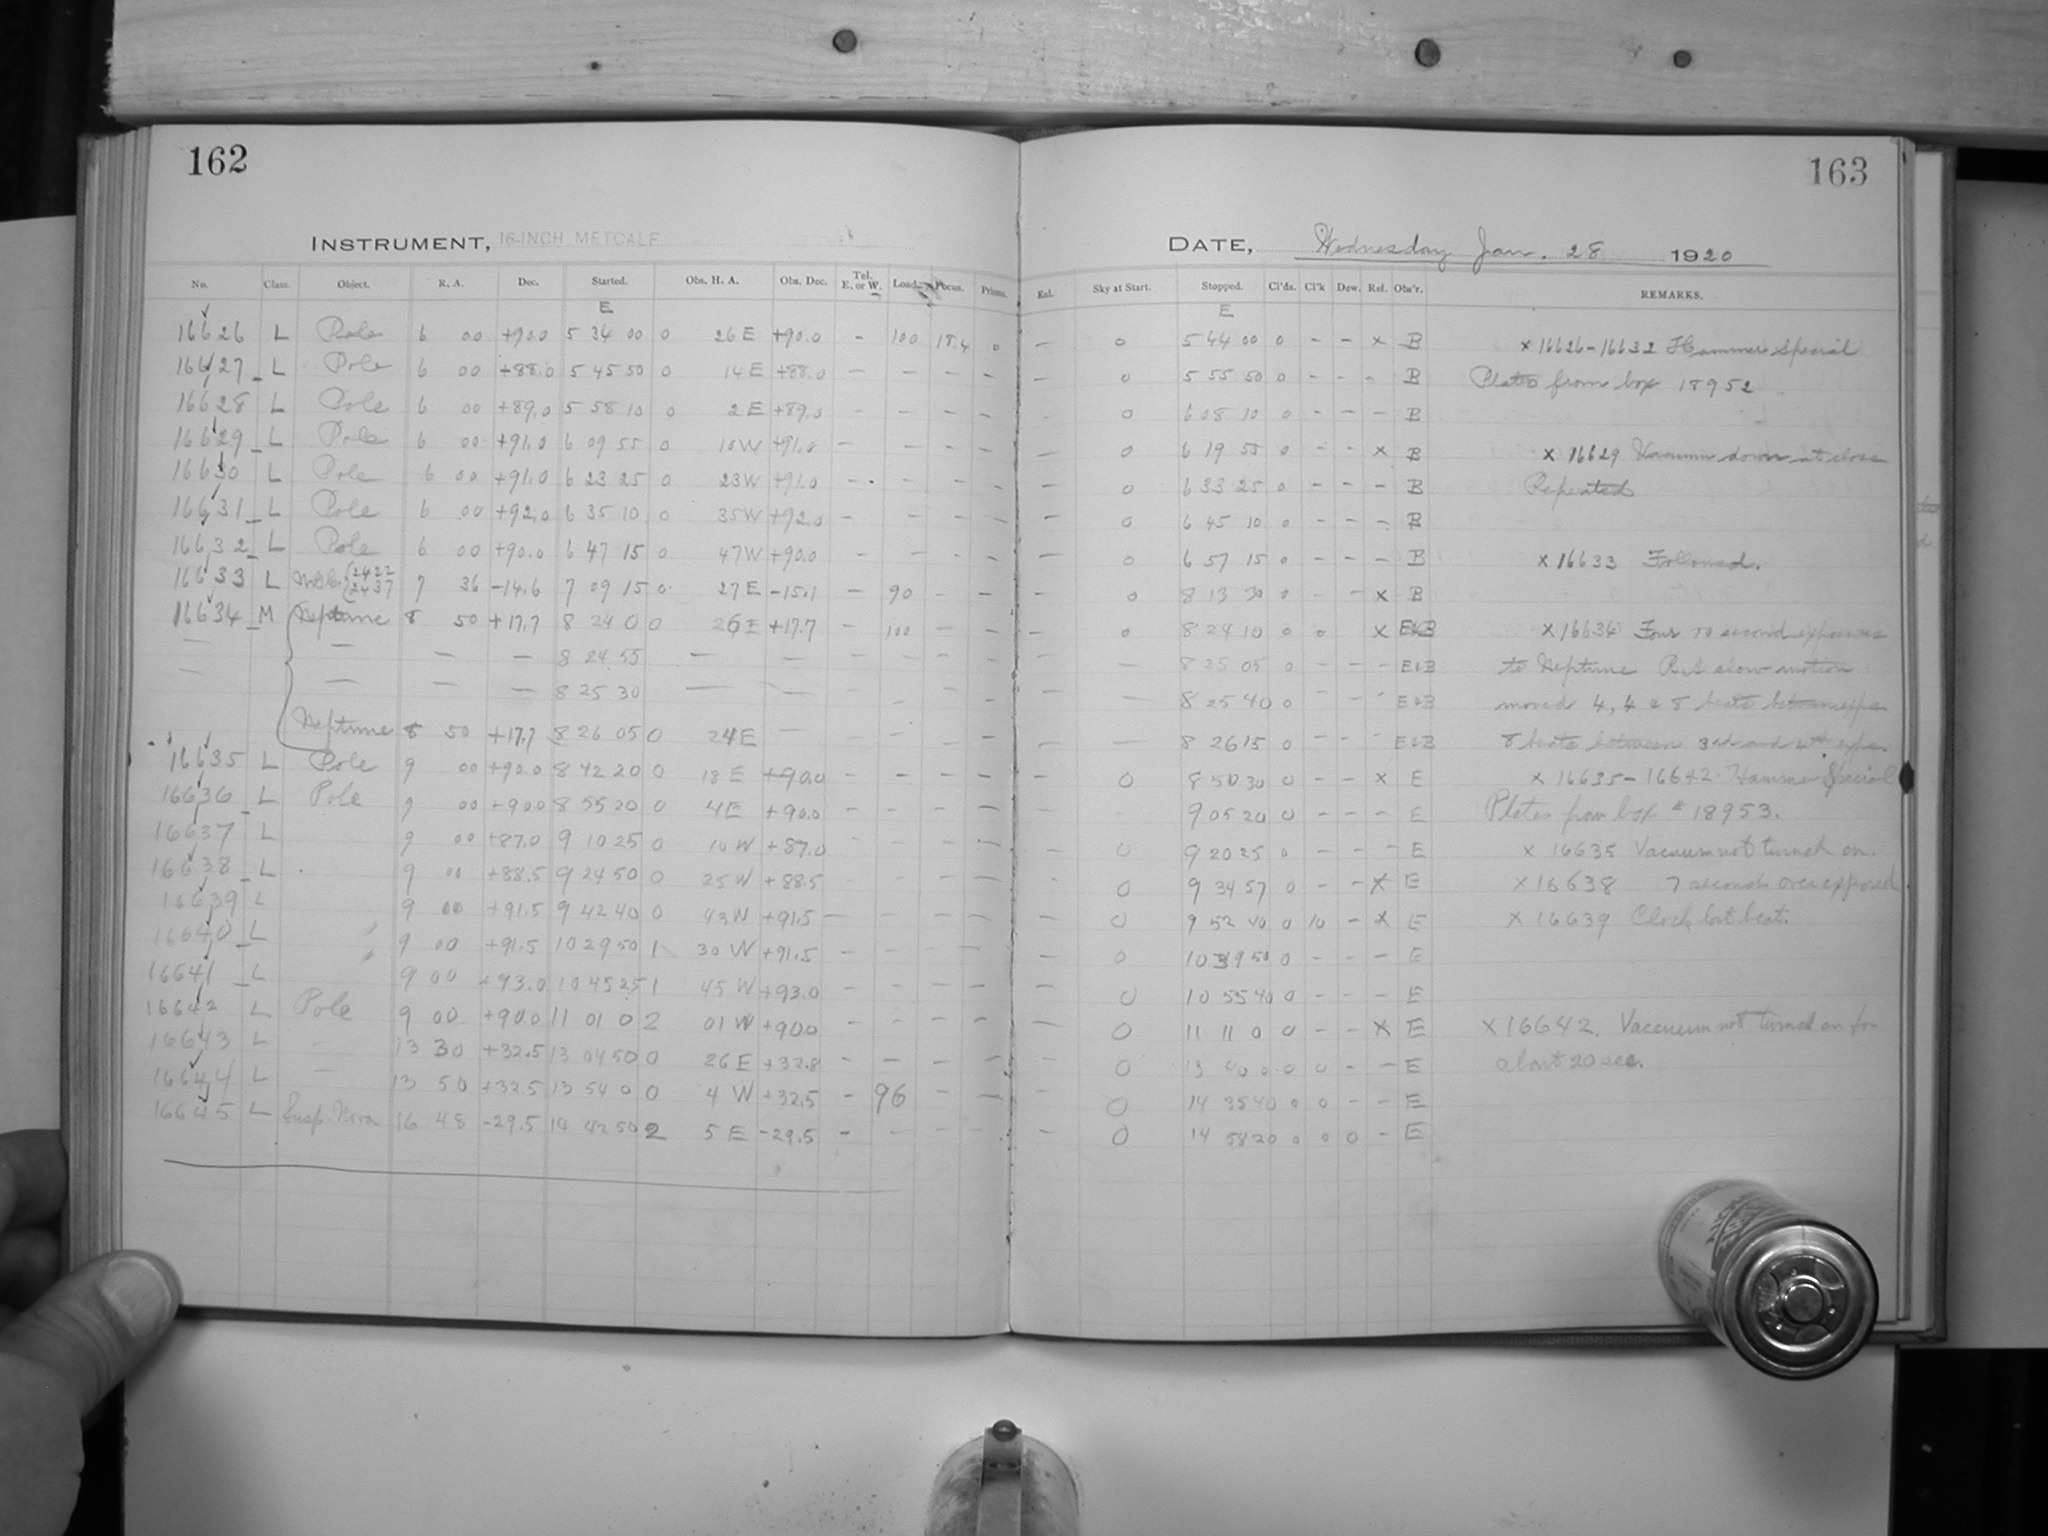 162
163
INSTRUMENT, 16-INCH METCALF
DATE, Wednesday Jan. 28 1920
No. Class. Object. R. A. Dec. Started. Obs. H. A. Obs. Dec. Tel. E. or W. Load. Focus. Prisms. Enl. Sky at Start. Stopped. Cl'ds. Cl'k Dew. Ref. Obs'r. REMARKS.
E E
16626 L Pole 6 00 +90.0 5 34 00 0 26 E +90.0 - 100 18.4 0 - 0 5 44 00 0 - - x B x 16626-16632 Hammer Special
16627 L Pole 6 00 +88.0 5 45 50 0 14 E +88.0 - - - - - 0 5 55 50 0 - - - B Plates from box 18952
16628 L Pole 6 00 +89.0 5 58 10 0 2 E +89.0 - - - - - 0 6 08 10 0 - - - B
16629 L Pole 6 00 +91.0 6 09 55 0 10 W +91.0 - - - - - 0 6 19 55 0 - - x B x 16629 Vacuum down at close
16630 L Pole 6 00 +91.0 6 23 25 0 23 W +91.0 - - - - - 0 6 33 25 0 - - - B Repeated
16631 L Pole 6 00 +92.0 6 35 10 0 35 W +92.0 - - - - - 0 6 45 10 0 - - - B
16632 L Pole 6 00 +90.0 6 47 15 0 47 W +90.0 - - - - - 0 6 57 15 0 - - - B x 16633 Followed.
16633 L N.G.C. { 2422 2437 7 36 -14.6 7 09 15 0 27 E -15.1 - 90 - - - 0 8 13 30 0 - - x B
16634 M Neptune 8 50 +17.7 8 24 0 0 26 E +17.7 - 100 - - - 0 8 24 10 0 0 x E&B x 16634 Four 10 second exposures
— — — — 8 24 55 — — - - - - - — 8 25 05 0 - - - E&B to Neptune R.A. slow motion
— — — — 8 25 30 — — - - - - — 8 25 40 0 - - - E&B moved 4, 4 & 8 beats between exps
Neptune 8 50 +17.7 8 26 05 0 24 E — - - - - - — 8 26 15 0 - - - E&B 8 beats between 3rd and 4th exps.
16635 L Pole 9 00 +90.0 8 42 20 0 18 E +90.0 - - - - - 0 8 50 30 0 - - x E x 16635-16642 Hammer Special
16636 L Pole 9 00 +90.0 8 55 20 0 4 E +90.0 - - - - - - 9 05 20 0 - - - E Plates from box # 18953.
16637 L 9 00 +87.0 9 10 25 0 10 W +87.0 - - - - - 0 9 20 25 0 - - - E x 16635 Vacuum not turned on.
16638 L 9 00 +88.5 9 24 50 0 25 W +88.5 - - - - - 0 9 34 57 0 - - x E x 16638 7 seconds overexposed
16639 L 9 00 +91.5 9 42 40 0 43 W +91.5 - - - - - 0 9 52 40 0 10 - x E x 16639 Clock lost beat.
16640 L " 9 00 +91.5 10 29 50 1 30 W +91.5 - - - - - 0 10 39 50 0 - - - E
16641 L " 9 00 +93.0 10 45 25 1 45 W +93.0 - - - - - 0 10 55 40 0 - - - E
16642 L Pole 9 00 +90.0 11 01 0 2 01 W +90.0 - - - - - 0 11 11 0 0 - - x E x 16642. Vaccuum not turned on for
16643 L — 13 30 +32.5 13 04 50 0 26 E +32.8 - - - - - 0 13 40 0 0 0 - - E about 20 sec.
16644 L — 13 50 +32.5 13 54 0 0 4 W +32.5 - 96 - - - 0 14 35 40 0 0 - - E
16645 L Susp. Nova 16 48 -29.5 14 42 50 2 5 E -29.5 - - - - - 0 14 58 20 0 0 0 - E